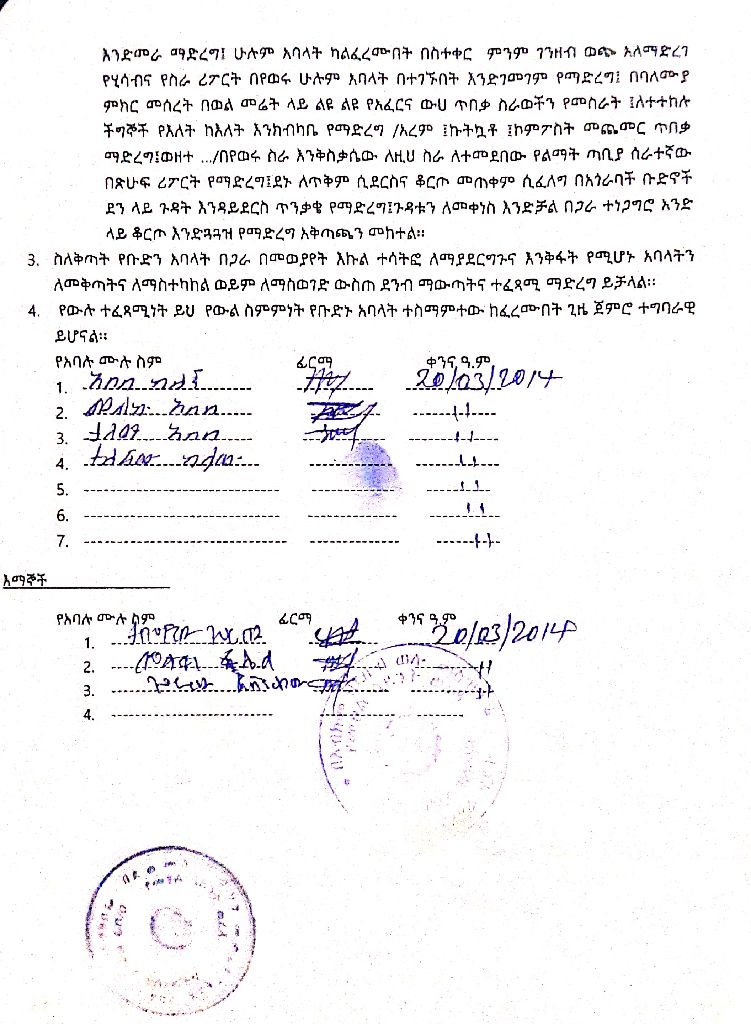 እንድመራ ማድረግ፤ ሁሉም አባላት ካልፈረሙበት በስተቀር ምንም ገንዘብ ወጭ አለማድረግ
የሂሳብና የስራ ሪፖርት በየወሩ ሁሉም አባላት በተገኙበት እንድገመገም የማድረግ፤ በባለሙያ
ምክር መሰረት በወል መሬት ላይ ልዩ ልዩ የአፈርና ውሀ ጥበቃ ስራወችን የመስራት ፤ለተተከሉ
ችግኞች የእለት ከእለት እንክብካቤ የማድረግ /አረም ፤ኩትኳቶ ፤ኮምፖስት መጨመር ጥበቃ
ማድረግ፤ወዘተ .../በየወሩ ስራ እንቅስቃሴው ለዚህ ስራ ለተመደበው የልማት ጣቢያ ሰራተኛው
በጽሁፍ ሪፖርት የማድረግ፤ደኑ ለጥቅም ሲደርስና ቆርጦ መጠቀም ሲፈለግ በአጎራባች ቡድኖች
ደን ላይ ጉዳት እንዳይደርስ ጥንቃቄ የማድረግ፤ጉዳቱን ለመቀነስ እንድቻል በጋራ ተነጋግሮ አንድ
ላይ ቆርጦ እንድጓጓዝ የማድረግ አቅጣጫን መከተል።
3. ስለቅጣት የቡድን አባላት በጋራ በመወያየት እኩል ተሳትፎ ለማያደርግጉና እንቅፋት የሚሆኑ አባላትን
ለመቅጣትና ለማስተካከል ወይም ለማስወገድ ውስጠ ደንብ ማውጣትና ተፈጻሚ ማድረግ ይቻላል።
4. የውሉ ተፈጻሚነት ይህ የውል ስምምነት የቡድኑ አባላት ተስማምተው ከፈረሙበት ጊዜ ጀምሮ ተግባራዊ
ይሆናል።
የአባሉ ሙሉ ስም ፊርማ ቀንና ዓ.ም
1. 20/03/2014
2. አበበ "
3. አበበ "
4. "
5. "
6. "
7. "
እማኞች
የአባሉ ሙሉ ስም ፊርማ ቀንና ዓ.ም
1. 20/03/2014
2. "
3. "
4.